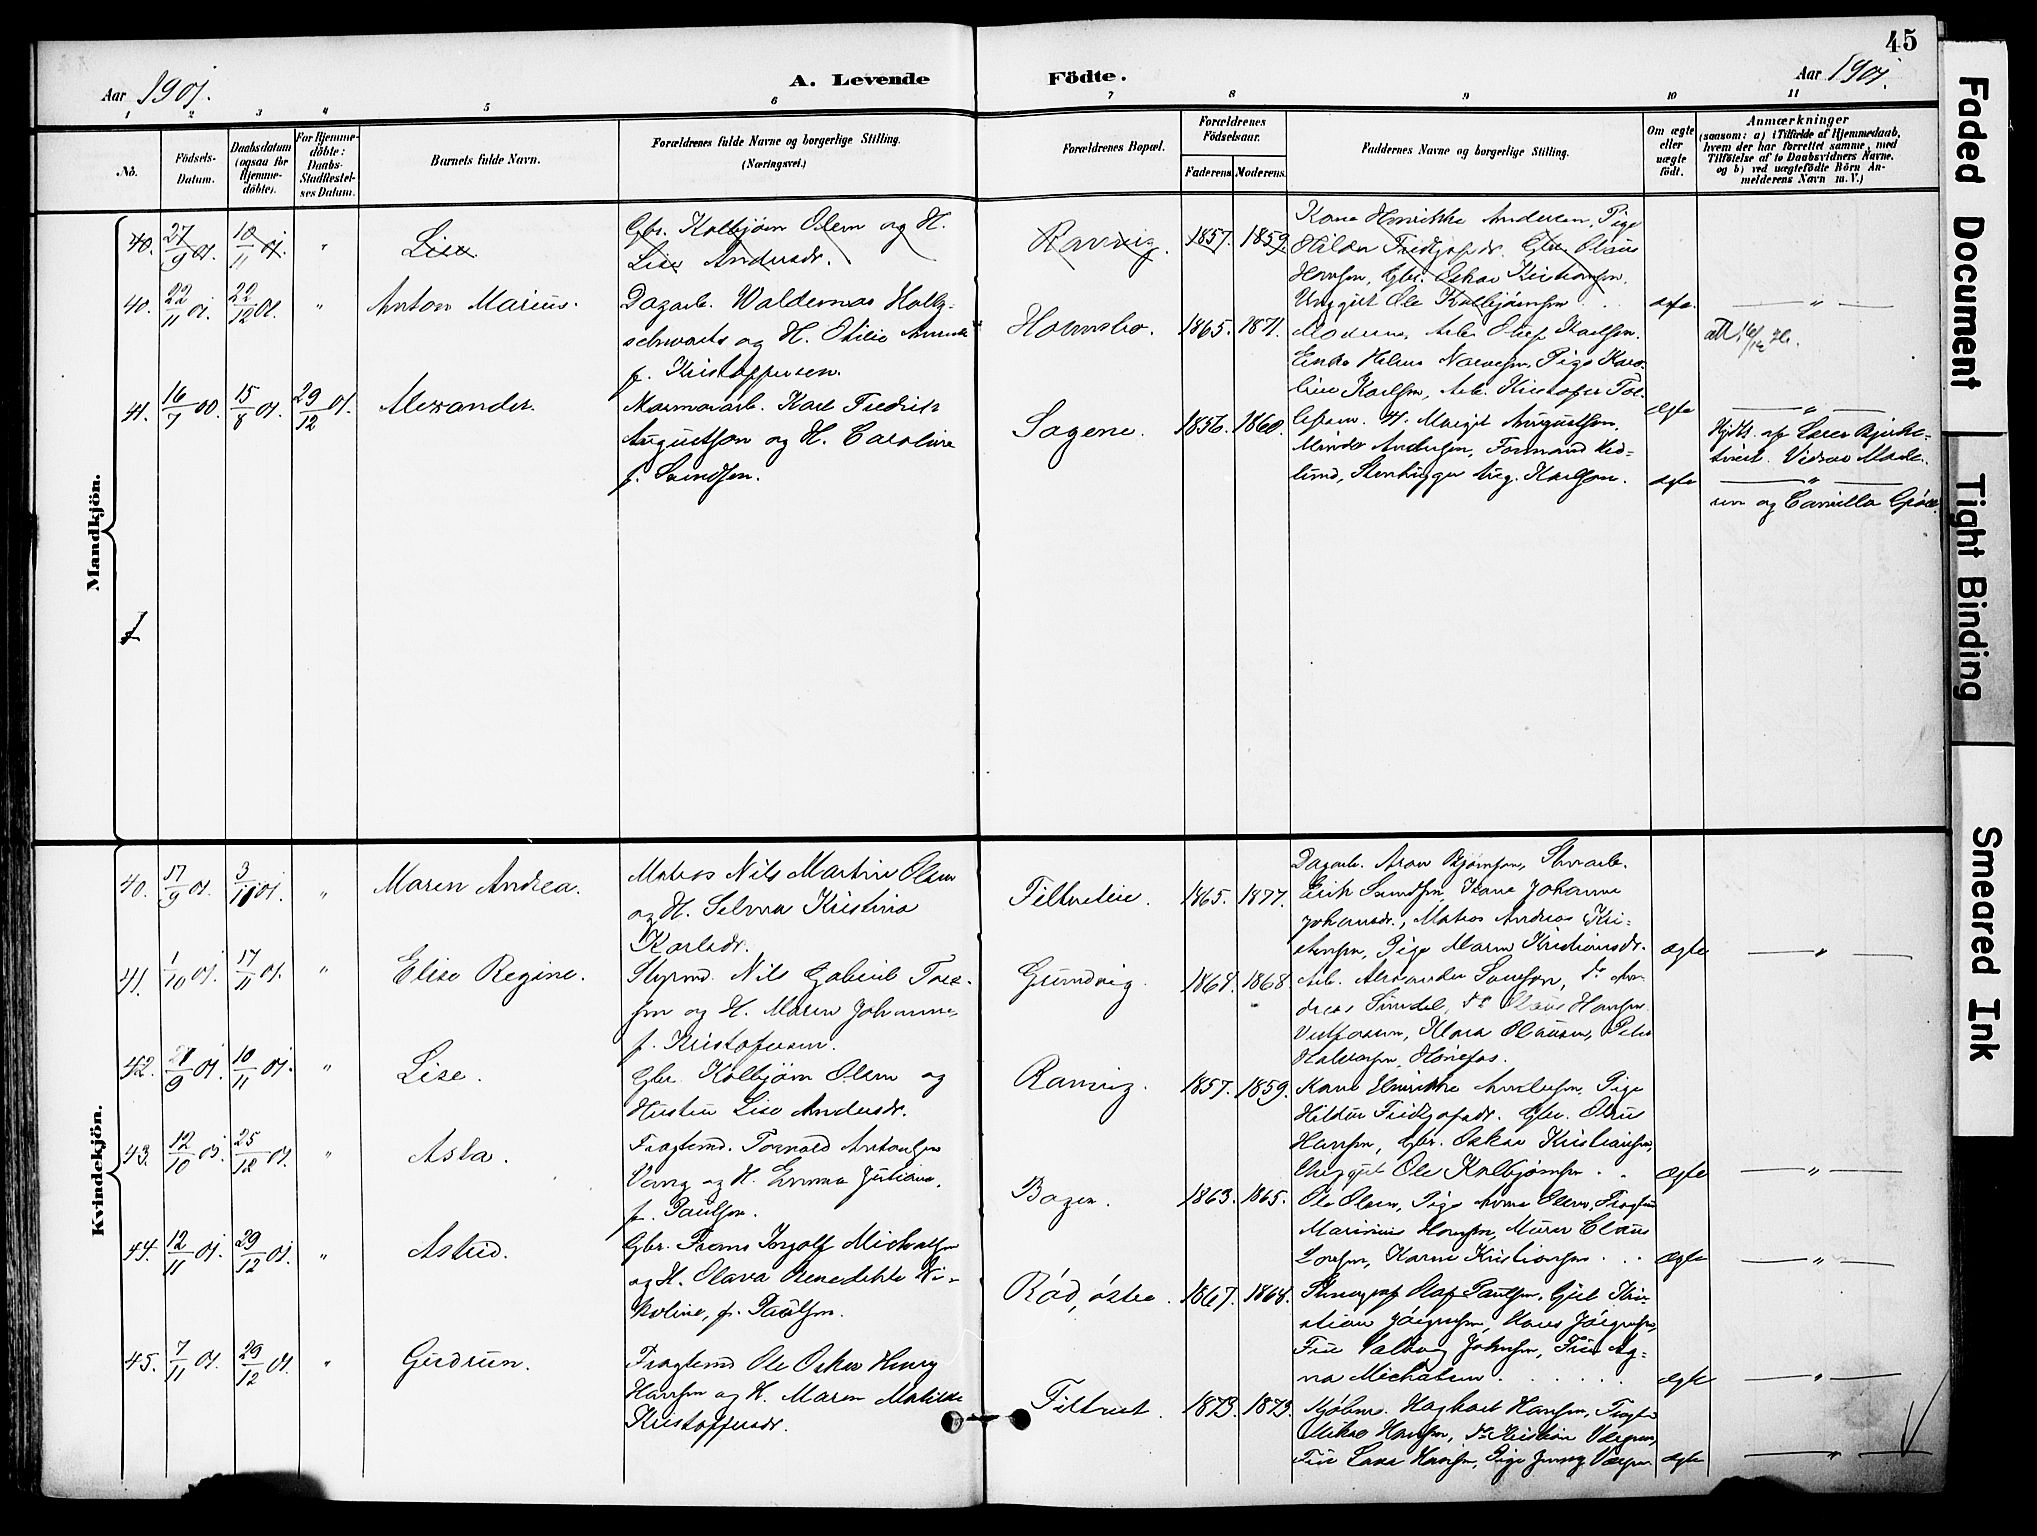 45
Aar 1901.
A. Levende
Födte.
Aar 1901.
1 2 3 4 5 6 7 8 9 10 11
No.
Födsels-
Datum.
Daabsdatum
(ogsaa for
Hjemme-
döbte).
For Hjemme-
döbte:
Daabs-
Stadfæstel-
ses Datum.
Barnets fulde Navn.
Forældrenes fulde Navne og borgerlige Stilling.
(Næringsvei.)
Forældrenes Bopæl.
Forældrenes
Födselsaar.
Faderens.
Moderens.
Faddernes Navne og borgerlige Stilling.
Om ægte
eller
uægte
født.
Anmærkninger
(saasom: a) i Tilfælde af Hjemmedaab,
hvem der har forrettet samme, med
Tilføielse af to Daabsvidners Navne,
og b) ved uægtefödte Börn An-
melderens Navn m. V.)
Mandkjön.
40. 27/9 01. 10/11 01. " Lise
Gbr. Kolbjörn Olsen og H.
Lise Andersdr.
Ramvig. 1857. 1859.
Kone Henrikke Andersen, Pige
Hilda Fredtjofsdr. Gbr. Olaus
Hansen, Gbr. Oskar Kristiansen,
Unggut Ole Kolbjörnsen . . ægte. — " —
40. 22/11 01. 22/12 01. " Anton Marius.
Dagarb. Waldemar Holtz-
schwarts og H. Otilie Amunda
f. Kristoffersen.
Holmsbo. 1865. 1871.
Moderen, Arb. Olaf Karlsen.
Enke Helene Narvesen, Pige Karo-
line Karlsen, Arb. Kristofer Tor-
ægte — " —
41. 16/7 00. 15/8 01. 29/12 01. Alexander.
Marmorarb. Karl Fredrik
Augustson og H. Caroline
f. Svendsen.
Sagene. 1856. 1860.
H. Margit Augustsen,
Minda Andersen, Formand Hed-
lund, Stenhugger Aug. Karlson. ægte
Hjdt. af Lærer Bjerke-
tveit. Vidner Mad-
— " —
sen og Camilla
Kvindekjön.
40. 17/9 01. 3/11 01. " Maren Andrea.
Matros Nils Martin Olsen
og H. Selma Kristine
Karlsdr.
Filtveitie. 1865. 1877.
Dagarb. Aron Bjørnsen, Stenarb.
Erik Svendsen, Kone Johanne
Johansdr., Matros Andreas Kri-
stensen, Pige Maren Kristiansdr. ægte — " —
41. 1/10 01. 17/11 01. " Elise Regine.
Styrmd. Nils Gabriel Tor-
sen og H. Maren Johanne
f. Kristofersen.
Grundvig. 1864. 1868.
Arb. Alexander Larsson, do An-
dreas Sundel, do Olaus Hansen
Vestfossen, Klara Olausen, Peter
Halvorsen, Hønefos.
42. 27/9 01. 10/11 01. " Lise.
Gbr. Kolbjörn Olsen og
Hustru Lise Andersdr.
Ramvig. 1857. 1859.
Kone Henrikke Andersen, Pige
Hilda Fredtjofsdr. Gbr. Olaus
Hansen, Gbr. Oskar Kristiansen,
Unggut Ole Kolbjörnsen . . ægte — " —
43. 12/10 01. 25/12 01. " Asta.
Fragtemd. Torvald Antonsen
Vang og H. Emma Juliane,
f. Paulsen.
Bogen. 1863. 1865.
Ole Olsen, Pige Anna Olsen, Fragtemd
Marinius Hansen, Murer Claus
Larsen, Karen Kristiansen . . ægte — " —
44. 12/11 01. 29/12 01. " Astrid.
Gbr. Frans Ingolf Michelsen
og H. Olava Benedikte Ni-
koline, f. Paulsen.
Rød, østre. 1867. 1868.
Olaf Paulsen, Gjet Kri-
stian Jørgensen, Hans Jørgensen,
Frue Valborg Johnsen, Frue Ag-
na Michelsen . . . . . . ægte — " —
45. 7/11 01. 29/12 01. " Gudrun.
Fragtemd Ole Oskar Henry
Hansen og H. Maren Matilde
Kristoffersdr.
Filtvet. 1873. 1873.
Kjøbmd. Hagbart Hansen, Fragtemd
Mikal Hansen, do Kristian
Frue Laura Hansen, Pige Jenny ægte — " —
Faded Document
Tight Binding
Smeared Ink